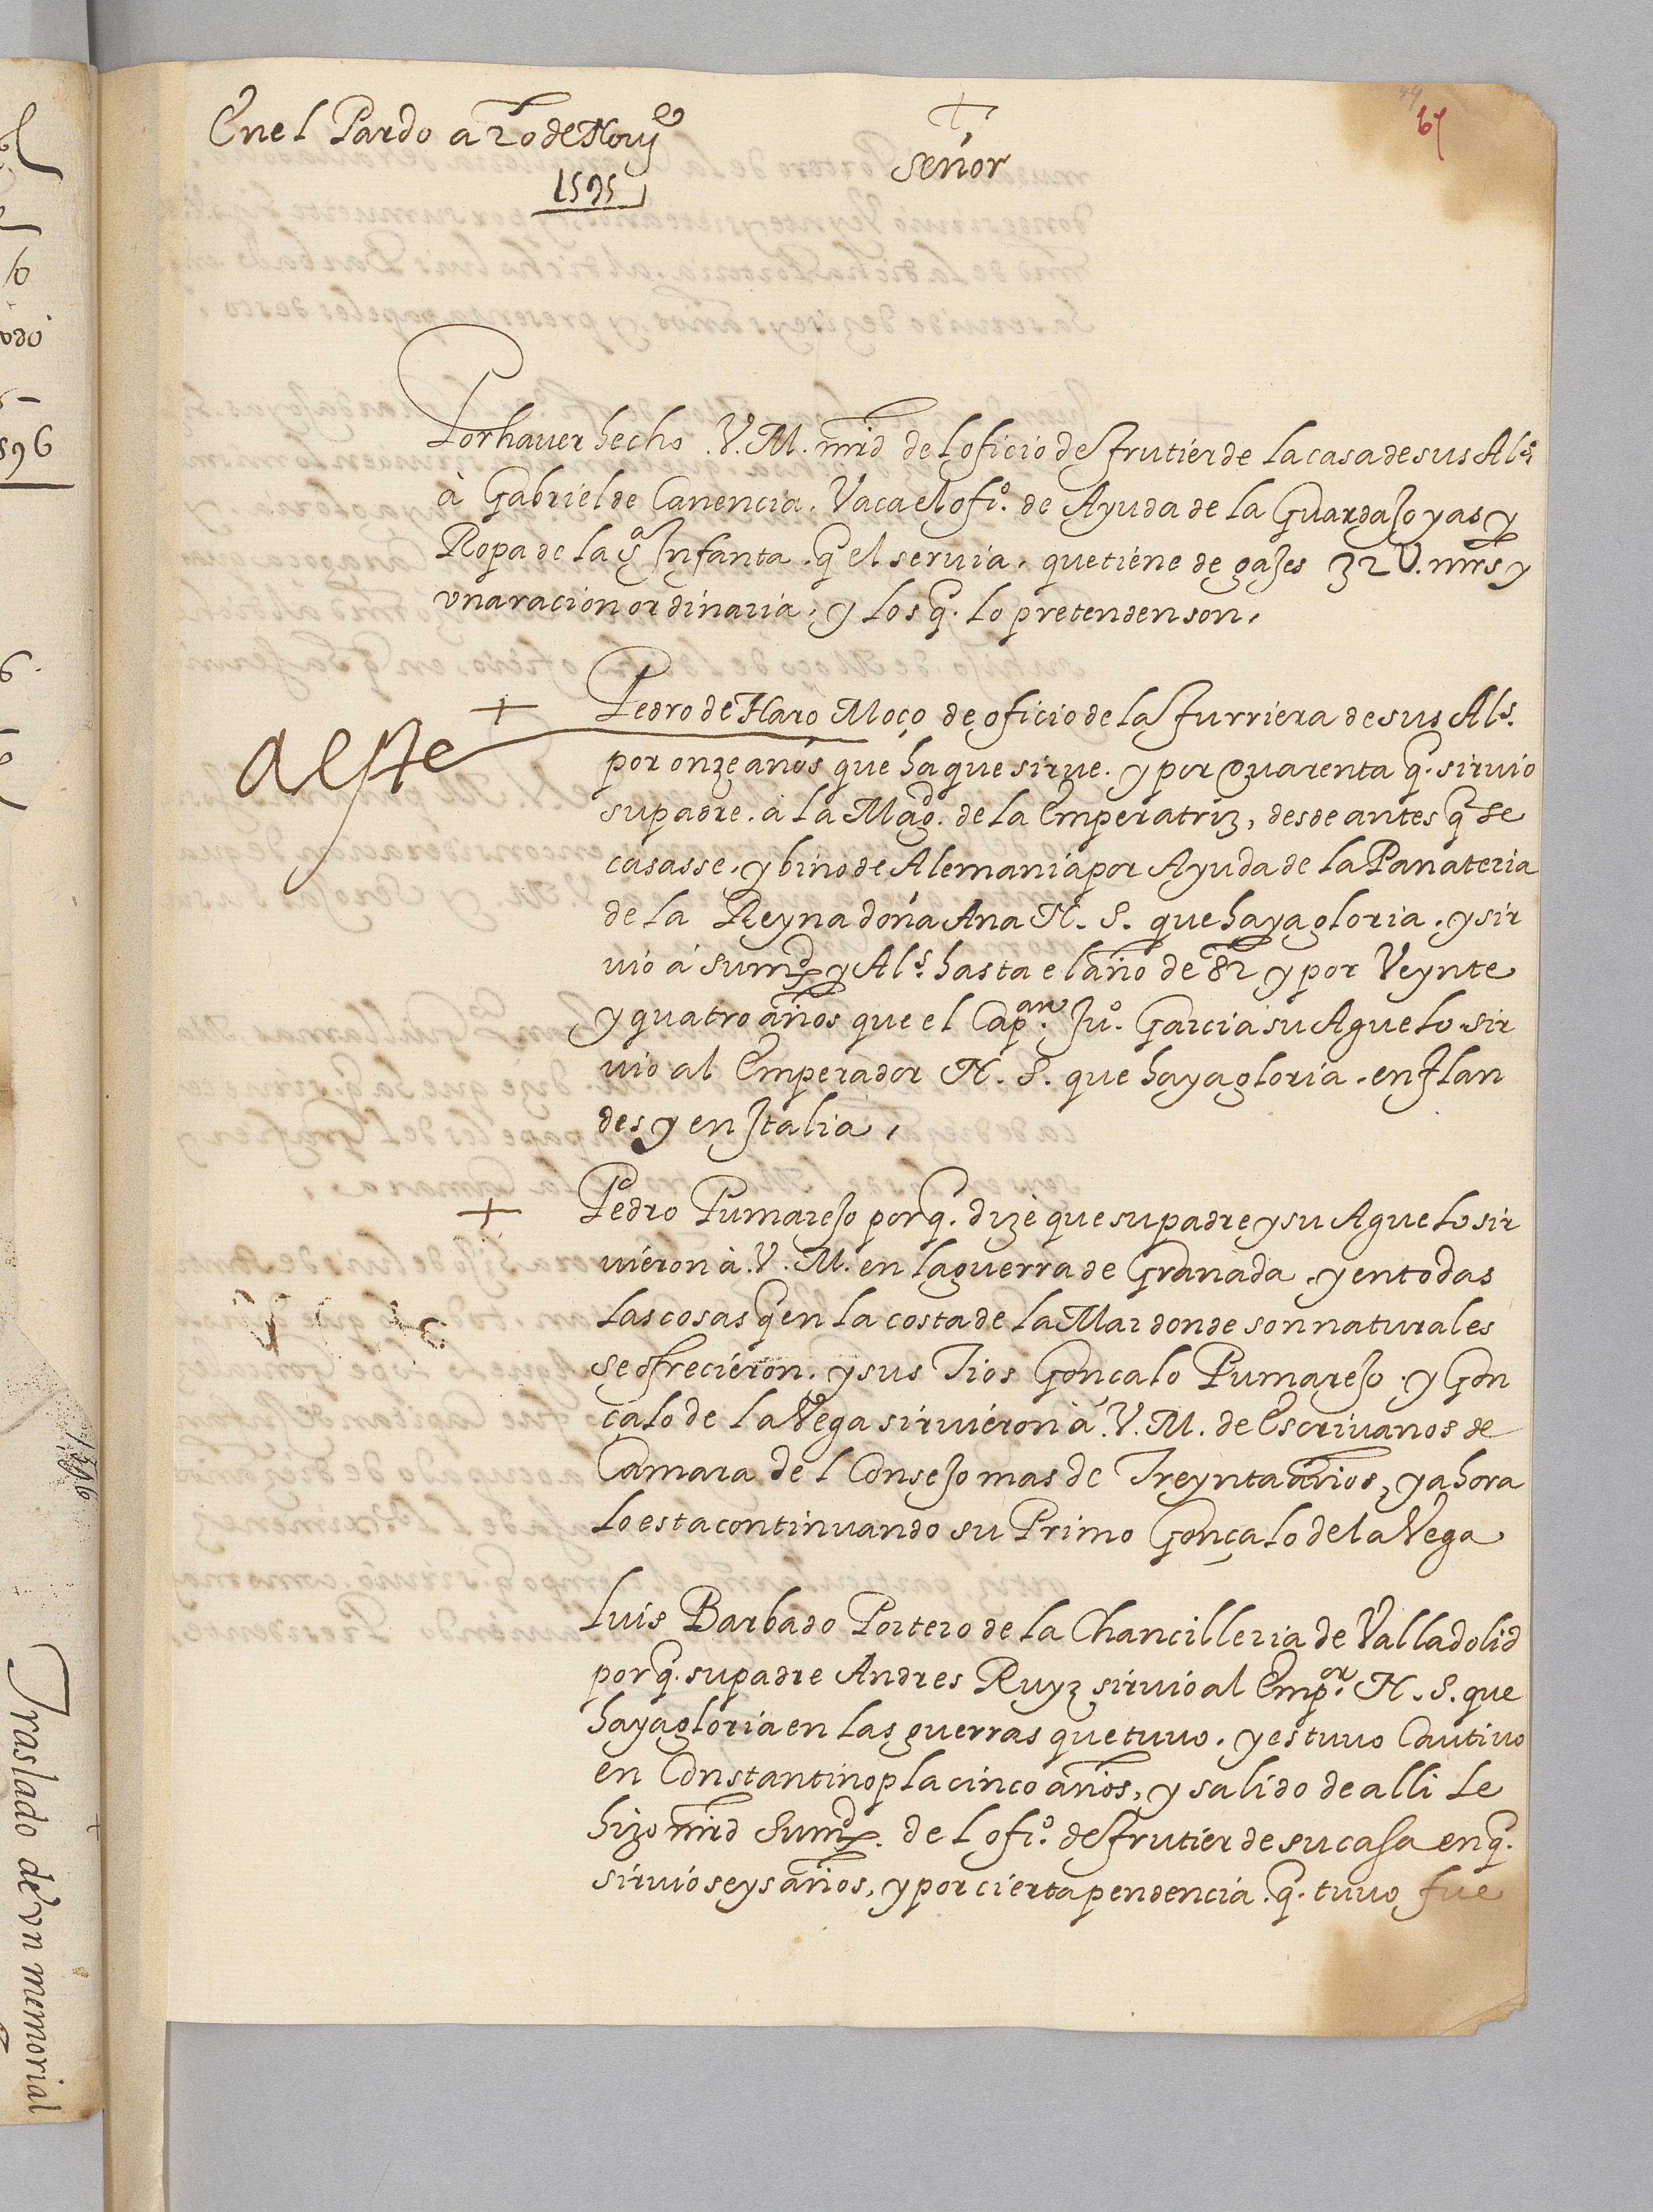 En el Pardo a 20 de Nouy.e
1595
Señor
67
Por hauer hecho .V.M. mrd del oficio de frutier de la casa de sus Al.s
à Gabriel de Canencia. Vaca el ofi.o de Ayuda de la Guardajoyas y
Ropa de la s.a Infanta . q̃ el seruia, que tiene de gajes 32 U. mrs y
vna racion ordinaria, y los q̃. lo pretenden son,
Pedro de Haro Moço de oficio de la furriera de sus Al.s
por onze años que ha que sirue . y por quarenta q̃. siruio
su padre . a la Mag.d de la Emperatriz, desde antes q̃ se
casasse, y bino de Alemania por Ayuda de la Panateria
de la Reyna doña Ana N. S. que haya gloria . y sir
uio a su m.d y Al.s hasta el año de 82 y por Veynte
y quatro años que el Cap.an Ju.o Garcia su Aguelo sir
uio al Emperador N. S. que haya gloria . en Flan
des y en Italia,
al este
Pedro Pumarejo porq̃. dize que su padre y su Aguelo sir
uieron à .V. M. en la guerra de Granada . y en todas
las cosas q̃ en la costa de la Mar donde son naturales
se ofrecieron . y sus Tios Gonçalo Pumarejo . y Gon
çalo de la Vega siruieron à .V. M. de Escriuanos de
Camara del Consejo mas de Treynta años, y ahora
lo esta continuando su Primo Gonçalo de la Vega
Luis Barbado Portero de la Chancilleria de Valladolid
porq̃. su padre Andres Ruyz siruio al Emp.or N. S. que
haya gloria en las guerras que tuuo . y estuuo Cautiuo
en Constantinopla cinco años, y salido de alli le
hizo mrd su m.d del ofi.o de frutier de su casa en q̃.
siruio seys años, y por cierta pendencia . q̃. tuuo fue
596
Traslado de vn memorial